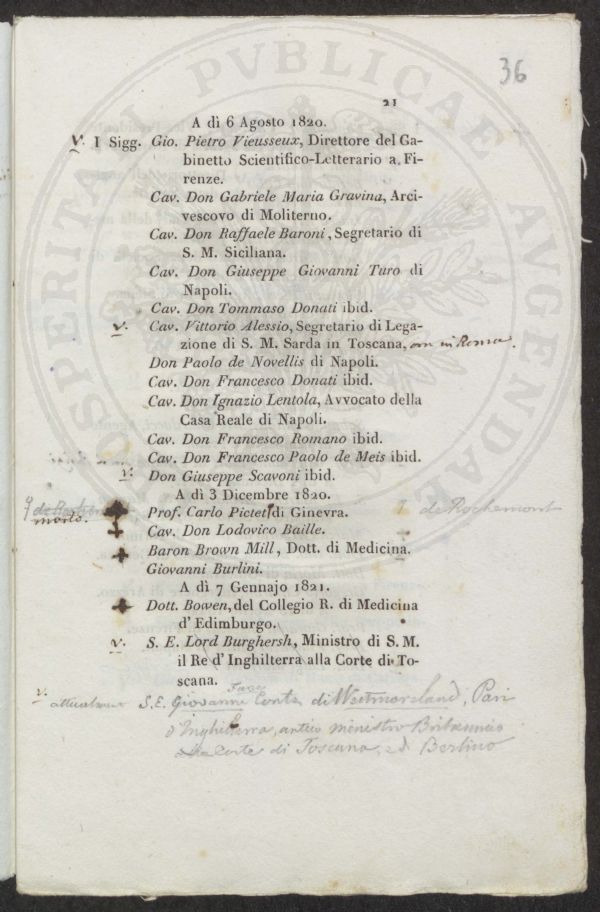 36
21
A dì 6 Agosto 1820.
V. I Sigg. Gio. Pietro Vieusseux, Direttore del Ga-
binetto Scientifico-Letterario a Fi-
renze.
Cav. Don Gabriele Maria Gravina, Arci-
vescovo di Moliterno.
Cav. Don Raffaele Baroni, Segretario di
S. M. Siciliana.
Cav. Don Giuseppe Giovanni Turo di
Napoli.
Cav. Don Tommaso Donati ibid.
V. Cav. Vittorio Alessio, Segretario di Lega-
zione di S. M. Sarda in Toscana, ora in Roma.
Don Paolo de Novellis di Napoli.
Cav. Don Francesco Donati ibid.
Cav. Don Ignazio Lentola, Avvocato della
Casa Reale di Napoli.
Cav. Don Francesco Romano ibid.
Cav. Don Francesco Paolo de Meis ibid.
V. Don Giuseppe Scavoni ibid.
A dì 3 Dicembre 1820.
morto. Prof. Carlo Pictet di Ginevra. de Rochemont
Cav. Don Lodovico Baille.
Baron Brown Mill, Dott. di Medicina.
Giovanni Burlini.
A dì 7 Gennajo 1821.
Dott. Bowen, del Collegio R. di Medicina
d' Edimburgo.
V. S. E. Lord Burghersh, Ministro di S. M.
il Re d' Inghilterra alla Corte di To-
scana.
V. S. E. Giovanni Conte di Westmoreland, Pari
d'Inghilterra, antico ministro Britannico
alla Corte di Toscana, e di Berlino
PROSPERITATI PVBLICAE AVGENDAE